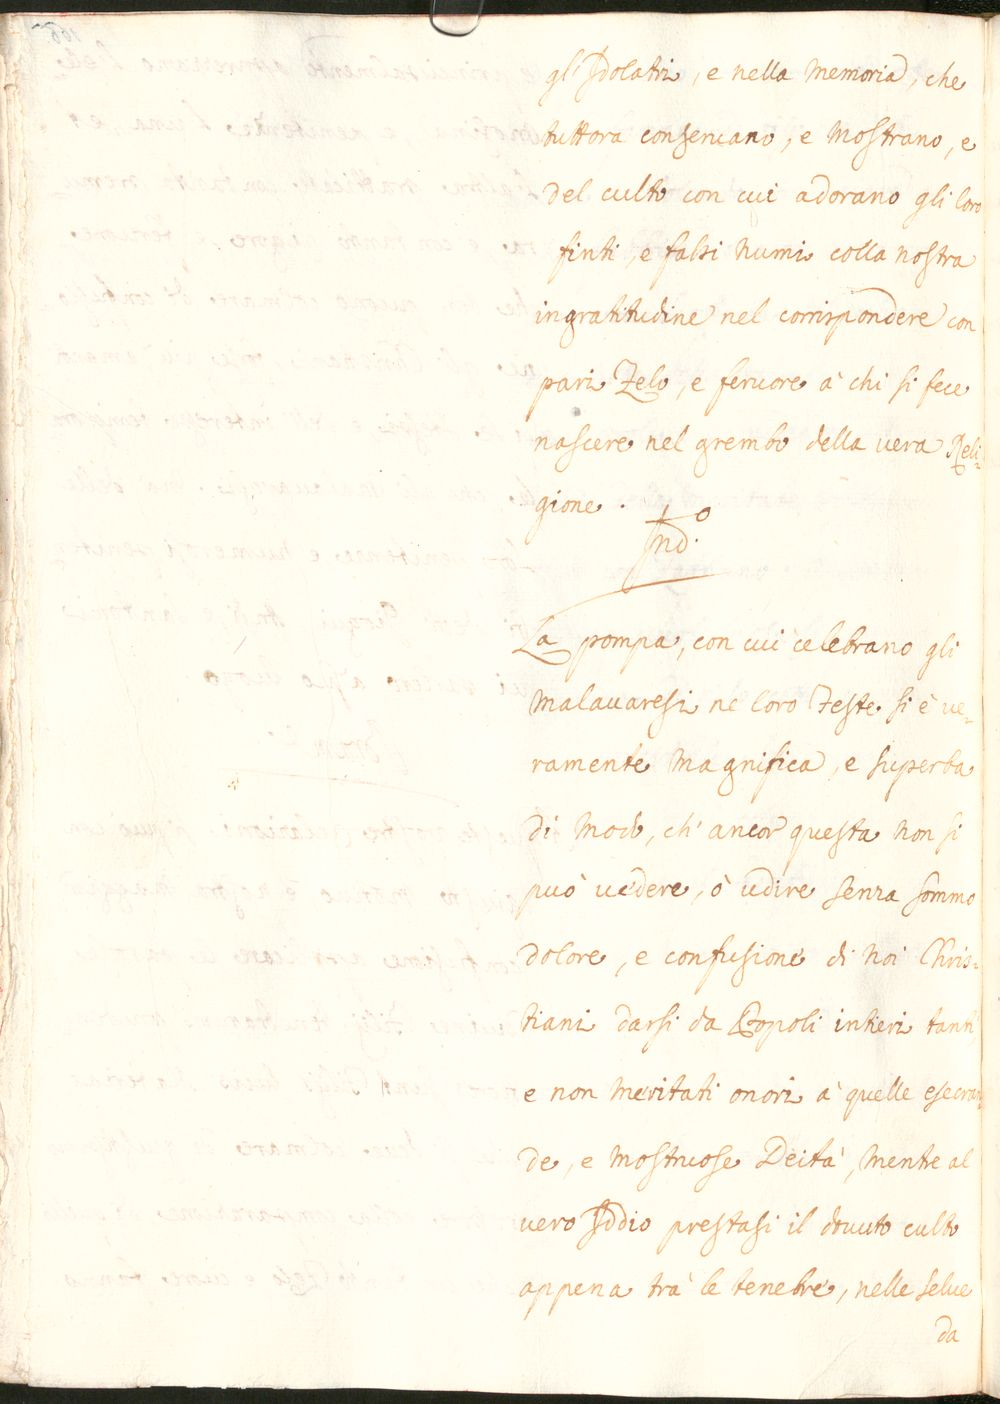 gl' Idolatri, e nella memoria, che
tuttora conseruano, e mostrano, e
del culto con cui adorano gli loro
finti, e falsi Numi colla nostra
ingratitudine nel corrispondere con
pari Zelo, e feruore à chi si fece
nascere nel grembo della uera Reli=
gione.
Ind.º
La pompa, con cui celebrano gli
Malauaresi ne loro Feste si è ue=
ramente magnifica, e superba
di modo, ch' ancor questa non si
può uedere, ò udire senza sommo
dolore, e confusione di noi Chris=
tiani darsi da Popoli intieri tanti,
e non meritati onori à quelle esecran
de, e mostruose Deità, mentre al
uero Iddio prestasi il douuto culto
appena trà le tenebre, nelle selue
da